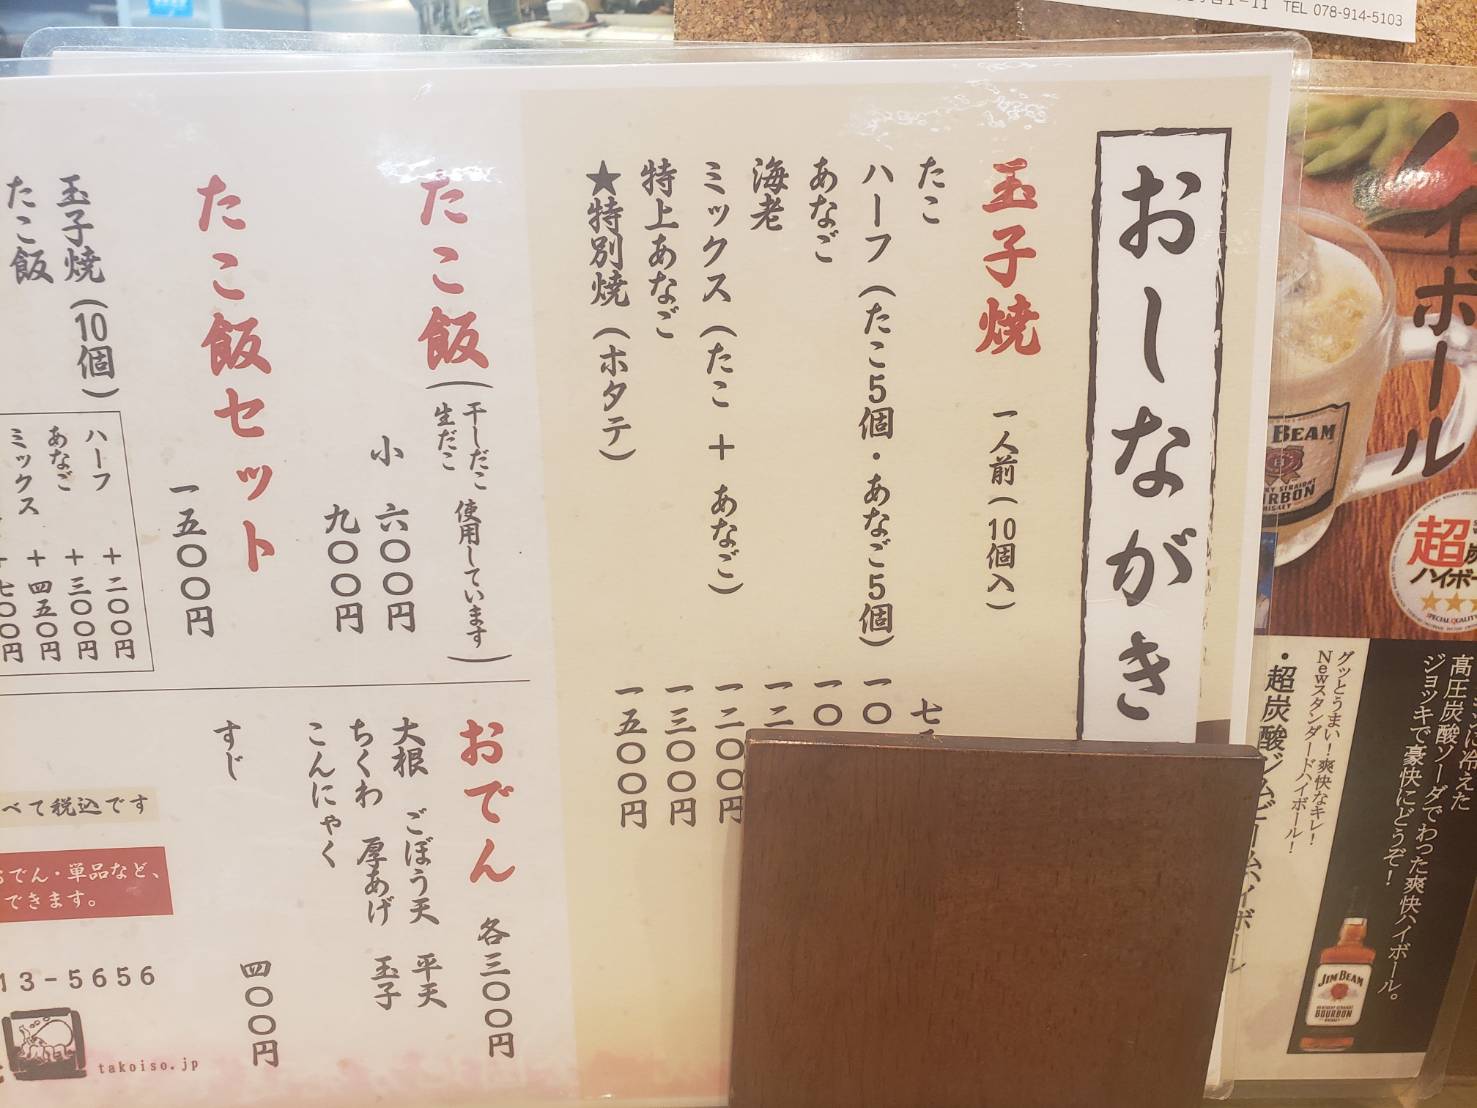 TEL 078-914-5103
おしながき
玉子焼 一人前(10個入)
たこ
ハーフ(たこ5個・あなご5個)
あなご
海老
ミックス(たこ+あなご)
特上あなご 一三〇〇円
★特別焼(ホタテ) 一五〇〇円
たこ飯(干しだこ 生だこ 使用しています)
小 六〇〇円
九〇〇円
たこ飯セット
一五〇〇円
玉子焼(10個)
たこ飯
ハーフ +二〇〇円
あなご +三〇〇円
ミックス +四五〇円
+七〇〇円
おでん 各三〇〇円
大根 ごぼう天 平天
ちくわ 厚あげ 玉子
こんにゃく
すじ 四〇〇円
べて税込です
でん・単品など、
できます。
13-5656
takoiso.jp
イボール
JIM BEAM
BOURBON
超
ハイボー
SPECIAL QUALITY
冷えた
高圧炭酸ソーダでわった爽快ハイボール。
ジョッキで豪快にどうぞ!
グッとうまい!爽快なキレ!
Newスタンダードハイボール!
・超炭酸ジムビームハイボール
JIM BEAM
BOURBON